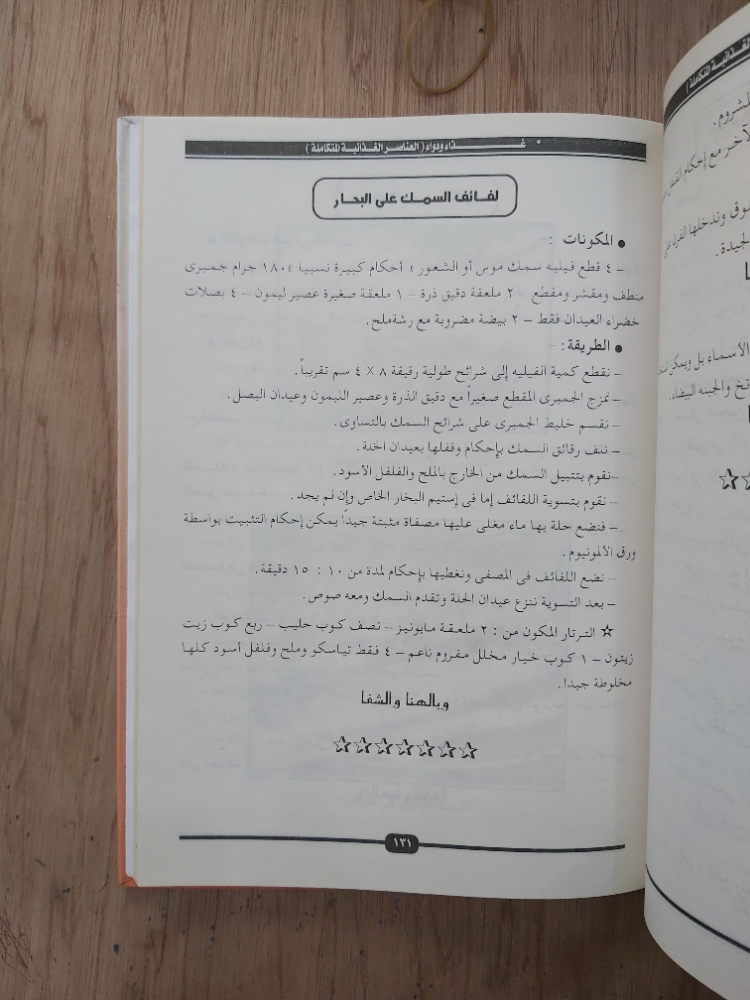 غذاء ودواء (العناصر الغذائية المتكاملة)
لفائف السمك على البخار
● المكونات :-
- ٤ قطع فيليه سمك موس أو الشعور « أحكام كبيرة نسبيا » ١٨٠ جرام جمبرى
منظف ومقشر ومقطع - ٢ ملعقة دقيق ذرة - ١ ملعقة صغيرة عصير ليمون - ٤ بصلات
خضراء العيدان فقط - ٢ بيضة مضروبة مع رشةملح.
● الطريقة :-
- نقطع كمية الفيليه إلى شرائح طولية رقيقة ٨ × ٤ سم تقريباً.
- نمزج الجمبرى المقطع صغيراً مع دقيق الذرة وعصير الليمون وعيدان البصل.
- نقسم خليط الجمبرى على شرائح السمك بالتساوى.
- نلف رقائق السمك بإحكام وقفلها بعيدان الخلة.
-نقوم بتتبيل السمك من الخارج بالملح والفلفل الأسود.
- نقوم بتسوية اللفائف إما فى إستيم البخار الخاص وإن لم يجد.
- فنضع حلة بها ماء مغلى عليها مصفاة مثبتة جيداً يمكن إحكام التثبيت بواسطة
ورق الألمونيوم.
- نضع اللفائف فى المصفى ونغطيها بإحكام لمدة من ١٠ : ١٥ دقيقة.
- بعد التسوية ننزع عيدان الخلة وتقدم السمك ومعه صوص.
☆ الترتار المكون من : ٢ ملعقة مايونيز - نصف كوب حليب - ربع كوب زيت
زيتون - ١ كوب خيار مخلل مفروم ناعم - ٤ فقط تباسكو وملح وفلفل أسود كلها
مخلوطة جيدا.
وبالهنا والشفا
☆☆☆☆☆☆☆
١٣١
الغذائية المتكاملة)
الآخر مع إحكام
وندخلها
الجيدة.
الأسماء بل ويمكن
والجبنه البيضاء.